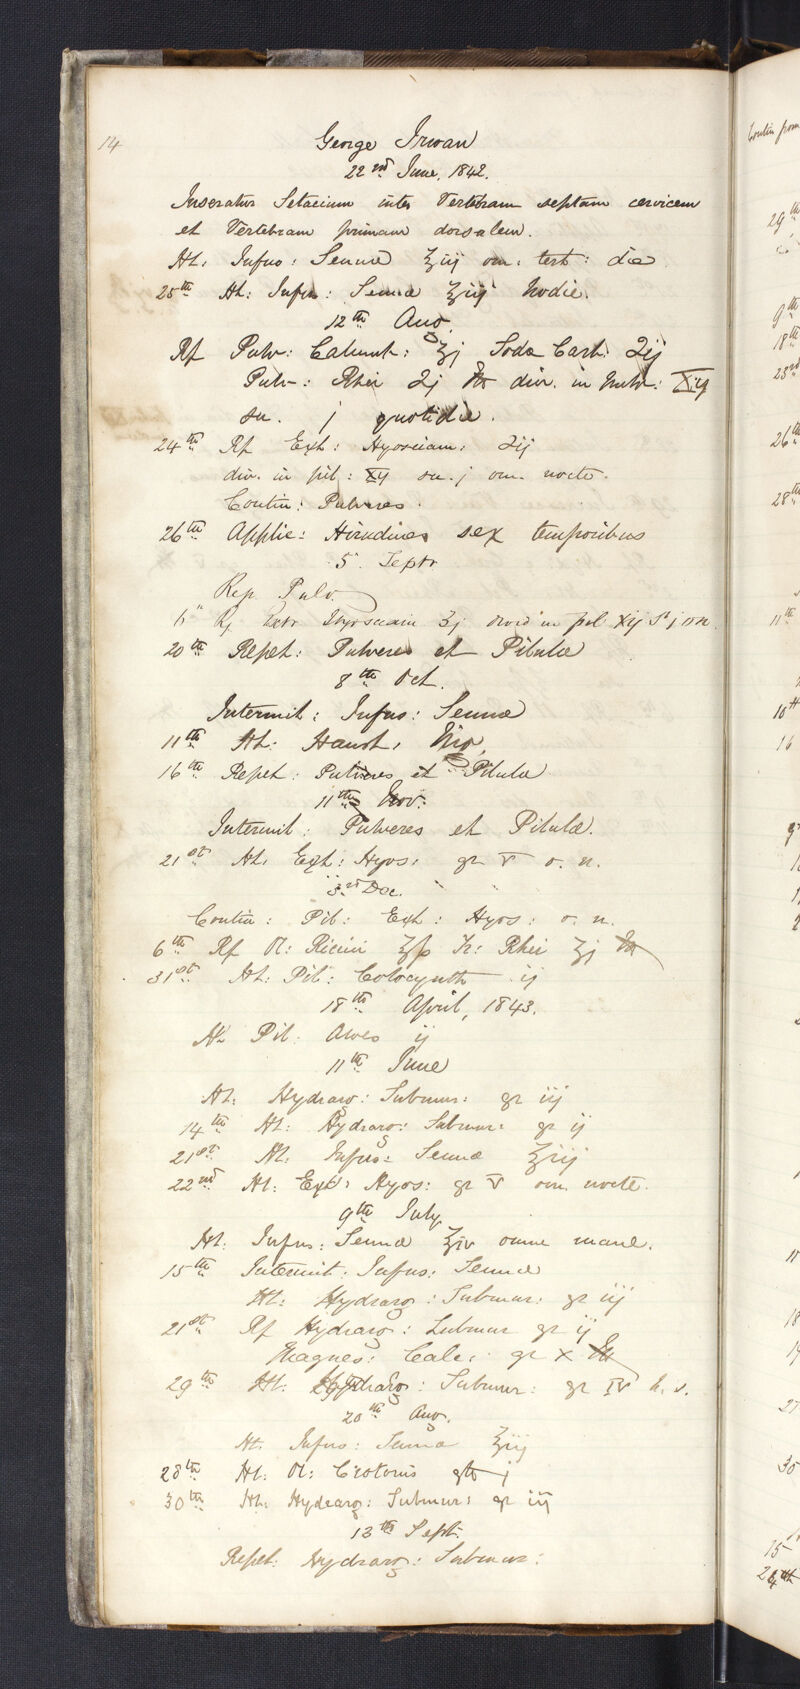 14
George Irwan
22nd June, 1842.
Inseratur Setacium inter Vertebram septam cervicem
et Vertebram primam dorsalem.
Ht: Infus: Sennæ ℥iij om: tert: die
25th Ht: Infus: Sennæ ℥iij hodie.
12th Aug.
Rf Pulv: Calumb: ʒj Soda Carb: ℈ij
Pulv: Rhei ℈j div. in Pulv: XII
su. j quotidie.
24th Rf Ext: Hyosciam: ℈ij
div. in pil: XII su. j om. nocte.
Contin: Pulveres.
26th Applic: Hirudines sex temporibus
5 Septr
Rep. Pulv.
6" Rx Extr Hyosciam ʒj divid in pil xij Sj on
20th Repet: Pulveres et Pilulæ
8th Oct.
Intermit: Infus: Sennæ
11th Ht: Haust: Nig.
16th Repet: Pulveres et Pilulæ
11th Nov:
Intermit: Pulveres et Pilulæ.
21st Ht: Ext: Hyos: gr V o. n.
3rd Dec.
Contin: Pil: Ext: Hyos: o. n.
6th Rf Ol: Ricini ℥ß Tr: Rhei ʒj
31st Ht: Pil: Colocynth ij
18th April, 1843.
Ht Pil: Aloes ij
11th June
Ht: Hydrarg: Submur: gr iij
14th Ht: Hydrarg: Submur: gr ij
21st Ht: Infus: Sennæ ℥iij
22nd Ht: Ext: Hyos: gr V om. nocte.
9th July
Ht: Infus: Sennæ ℥iv omne mane.
15th Intermit: Infus: Sennæ
Ht: Hydrarg: Submur: gr iij
21st Rf Hydrarg: Submur gr ij
Magnes: Calc: gr X
29th Ht: Hydrarg: Submur: gr IV h. s.
20th Aug.
Ht. Infus: Sennæ ℥iij
28th Ht: Ol: Crotonis gtt j
30th Ht: Hydrarg: Submur: gr iij
13th Sept.
Repet: Hydrarg: Submur:
Contin from
29th
9th
18th
23rd
26th
28th
11th
16
15
24th